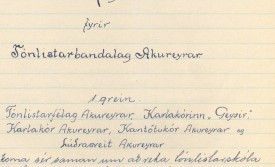 fyrir
Tónlistarbandalag Akureyrar
1. grein.
Tónlistarfélag Akureyrar, Karlakórinn „Geysir",
Karlakór Akureyrar, Kantötukór Akureyrar og
Lúðrasveit Akureyrar
koma sér saman um at reka tónlistarskóla